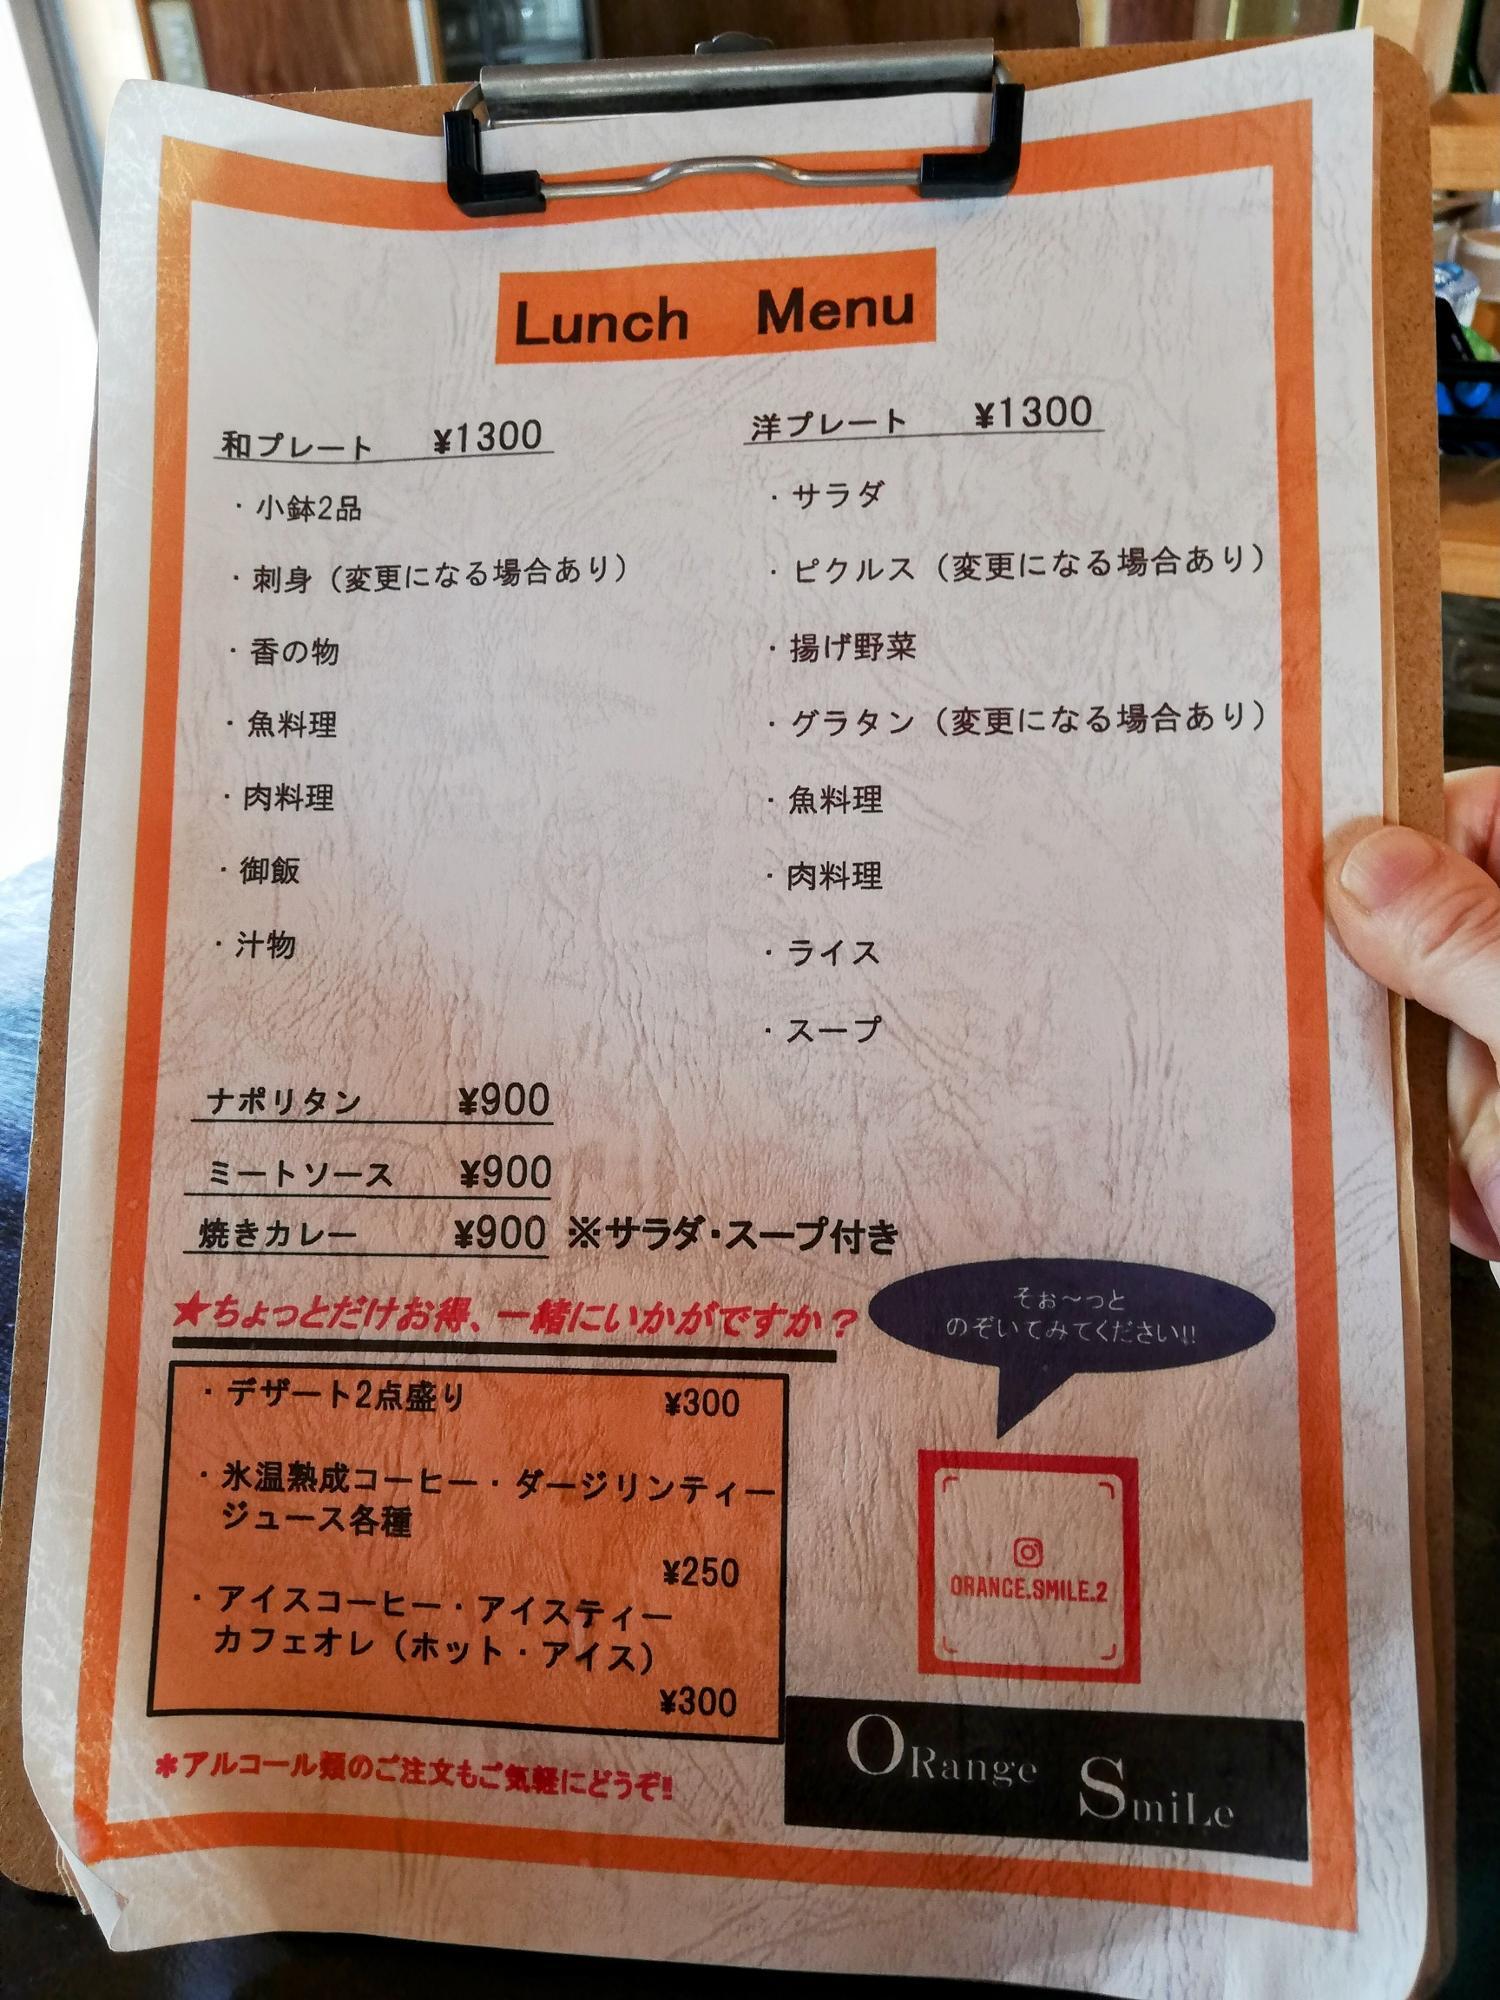 Lunch Menu
和プレート ¥1300
・小鉢2品
・刺身（変更になる場合あり）
・香の物
・魚料理
・肉料理
・御飯
・汁物
洋プレート ¥1300
・サラダ
・ピクルス（変更になる場合あり）
・揚げ野菜
・グラタン（変更になる場合あり）
・魚料理
・肉料理
・ライス
・スープ
ナポリタン ¥900
ミートソース ¥900
焼きカレー ¥900 ※サラダ・スープ付き
★ちょっとだけお得、一緒にいかがですか？
・デザート2点盛り ¥300
・氷温熟成コーヒー・ダージリンティー
ジュース各種
¥250
・アイスコーヒー・アイスティー
カフェオレ（ホット・アイス）
¥300
＊アルコール類のご注文もご気軽にどうぞ!!
そぉ〜っと
のぞいてみてください!!
ORANGE.SMILE.2
ORange SmiLe